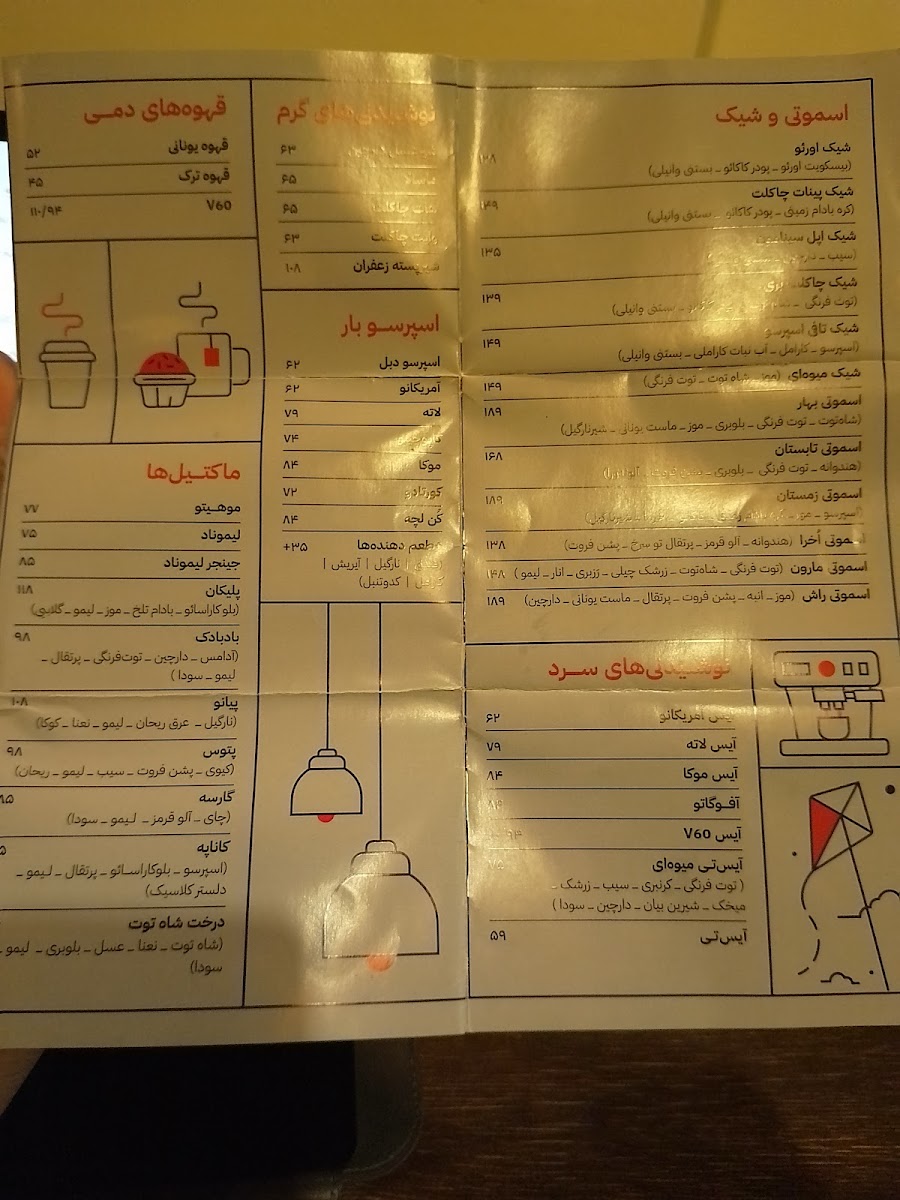 اسموتی و شیک
شیک اورئو
(بیسکویت اورئو _ پودر کاکائو _ بستنی وانیلی)
شیک پینات چاکلت
(کره بادام زمینی _ پودر کاکائو _ بستنی وانیلی)
شیک اپل ۱۳۵
(سیب _ دارچین
شیک ۱۳۹
(توت فرنگی _ بستنی وانیلی)
شیک تافی اسپرسو ۱۴۹
(اسپرسو _ کارامل _ آب نبات کاراملی _ بستنی وانیلی)
شیک میوه‌ای (موز _ شاه توت _ توت فرنگی) ۱۴۹
اسموتی بهار ۱۸۹
(شاه‌توت _ توت فرنگی _ بلوبری _ موز _ ماست یونانی _ شیرنارگیل)
اسموتی تابستان ۱۶۸
(هندوانه _ توت فرنگی _ بلوبری _
اسموتی زمستان ۱۸۹
(اسپرسو _ موز _
اسموتی اُخرا (هندوانه _ آلو قرمز _ پرتقال تو سرخ _ پشن فروت) ۱۳۸
اسموتی مارون (توت فرنگی _ شاه‌توت _ زرشک چیلی _ رزبری _ انار _ لیمو) ۱۴۸
اسموتی راش (موز _ انبه _ پشن فروت _ پرتقال _ ماست یونانی _ دارچین) ۱۸۹
نوشیدنی‌های سرد
آیس آمریکانو ۶۲
آیس لاته ۷۹
آیس موکا ۸۴
آفـوگاتو ۸۹
آیس V60
آیس‌تی میوه‌ای
( توت فرنگی _ کرنبری _ سیب _ زرشک _
میخک _ شیرین بیان _ دارچین _ سودا )
آیس‌تی ۵۹
نوشیدنی‌های گرم
۶۳
ماسالا ۶۵
چاکلت ۶۵
وایت چاکلت ۶۳
شیرپسته زعفران ۱۰۸
اسپرسـو بار
اسپرسو دبل ۶۲
آمریکانو ۶۲
لاته ۷۹
۷۴
موکا ۸۴
کورتادو ۷۲
کُن لچه ۸۴
طعم دهنده‌ها +۳۵
| نارگیل | آیریش |
| کدوتنبل)
قهوه‌های دمـی
قهوه یونانی ۵۲
قهوه ترک ۴۵
V60 ۱۱۰/۹۴
ماکتـیل‌ها
موهـیتو ۷۷
لیموناد ۷۵
جینجر لیموناد ۸۵
پلیکان ۱۱۸
(بلوکاراسائو _ بادام تلخ _ موز _ لیمو _ گلاسی)
بادبادک ۹۸
(آدامس _ دارچین _ توت‌فرنگی _ پرتقال _
لیمو _ سودا )
پیانو ۱۰۸
(نارگیل _ عرق ریحان _ لیمو _ نعنا _ کوکا)
پتوس ۹۸
(کیوی _ پشن فروت _ سیب _ لیمو _ ریحان)
گارسه
(چای _ آلو قرمز _ لـیمو _ سودا)
کاناپه
(اسپرسو _ بلوکاراسـائو _ پرتقال _ لـیمو _
دلستر کلاسیک)
درخت شاه توت
(شاه توت _ نعنا _ عسل _ بلوبری _ لیمو _
سودا)